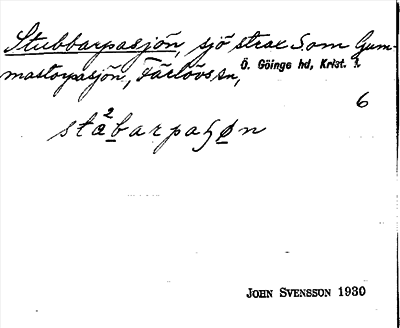 Stubbarpasjön, sjö strax S om Gum-
mastorpasjön, Färlövs sn,
Ö. Göinge hd, Krist. l.
6
sta²barpaɧøn
JOHN SVENSSON 1930